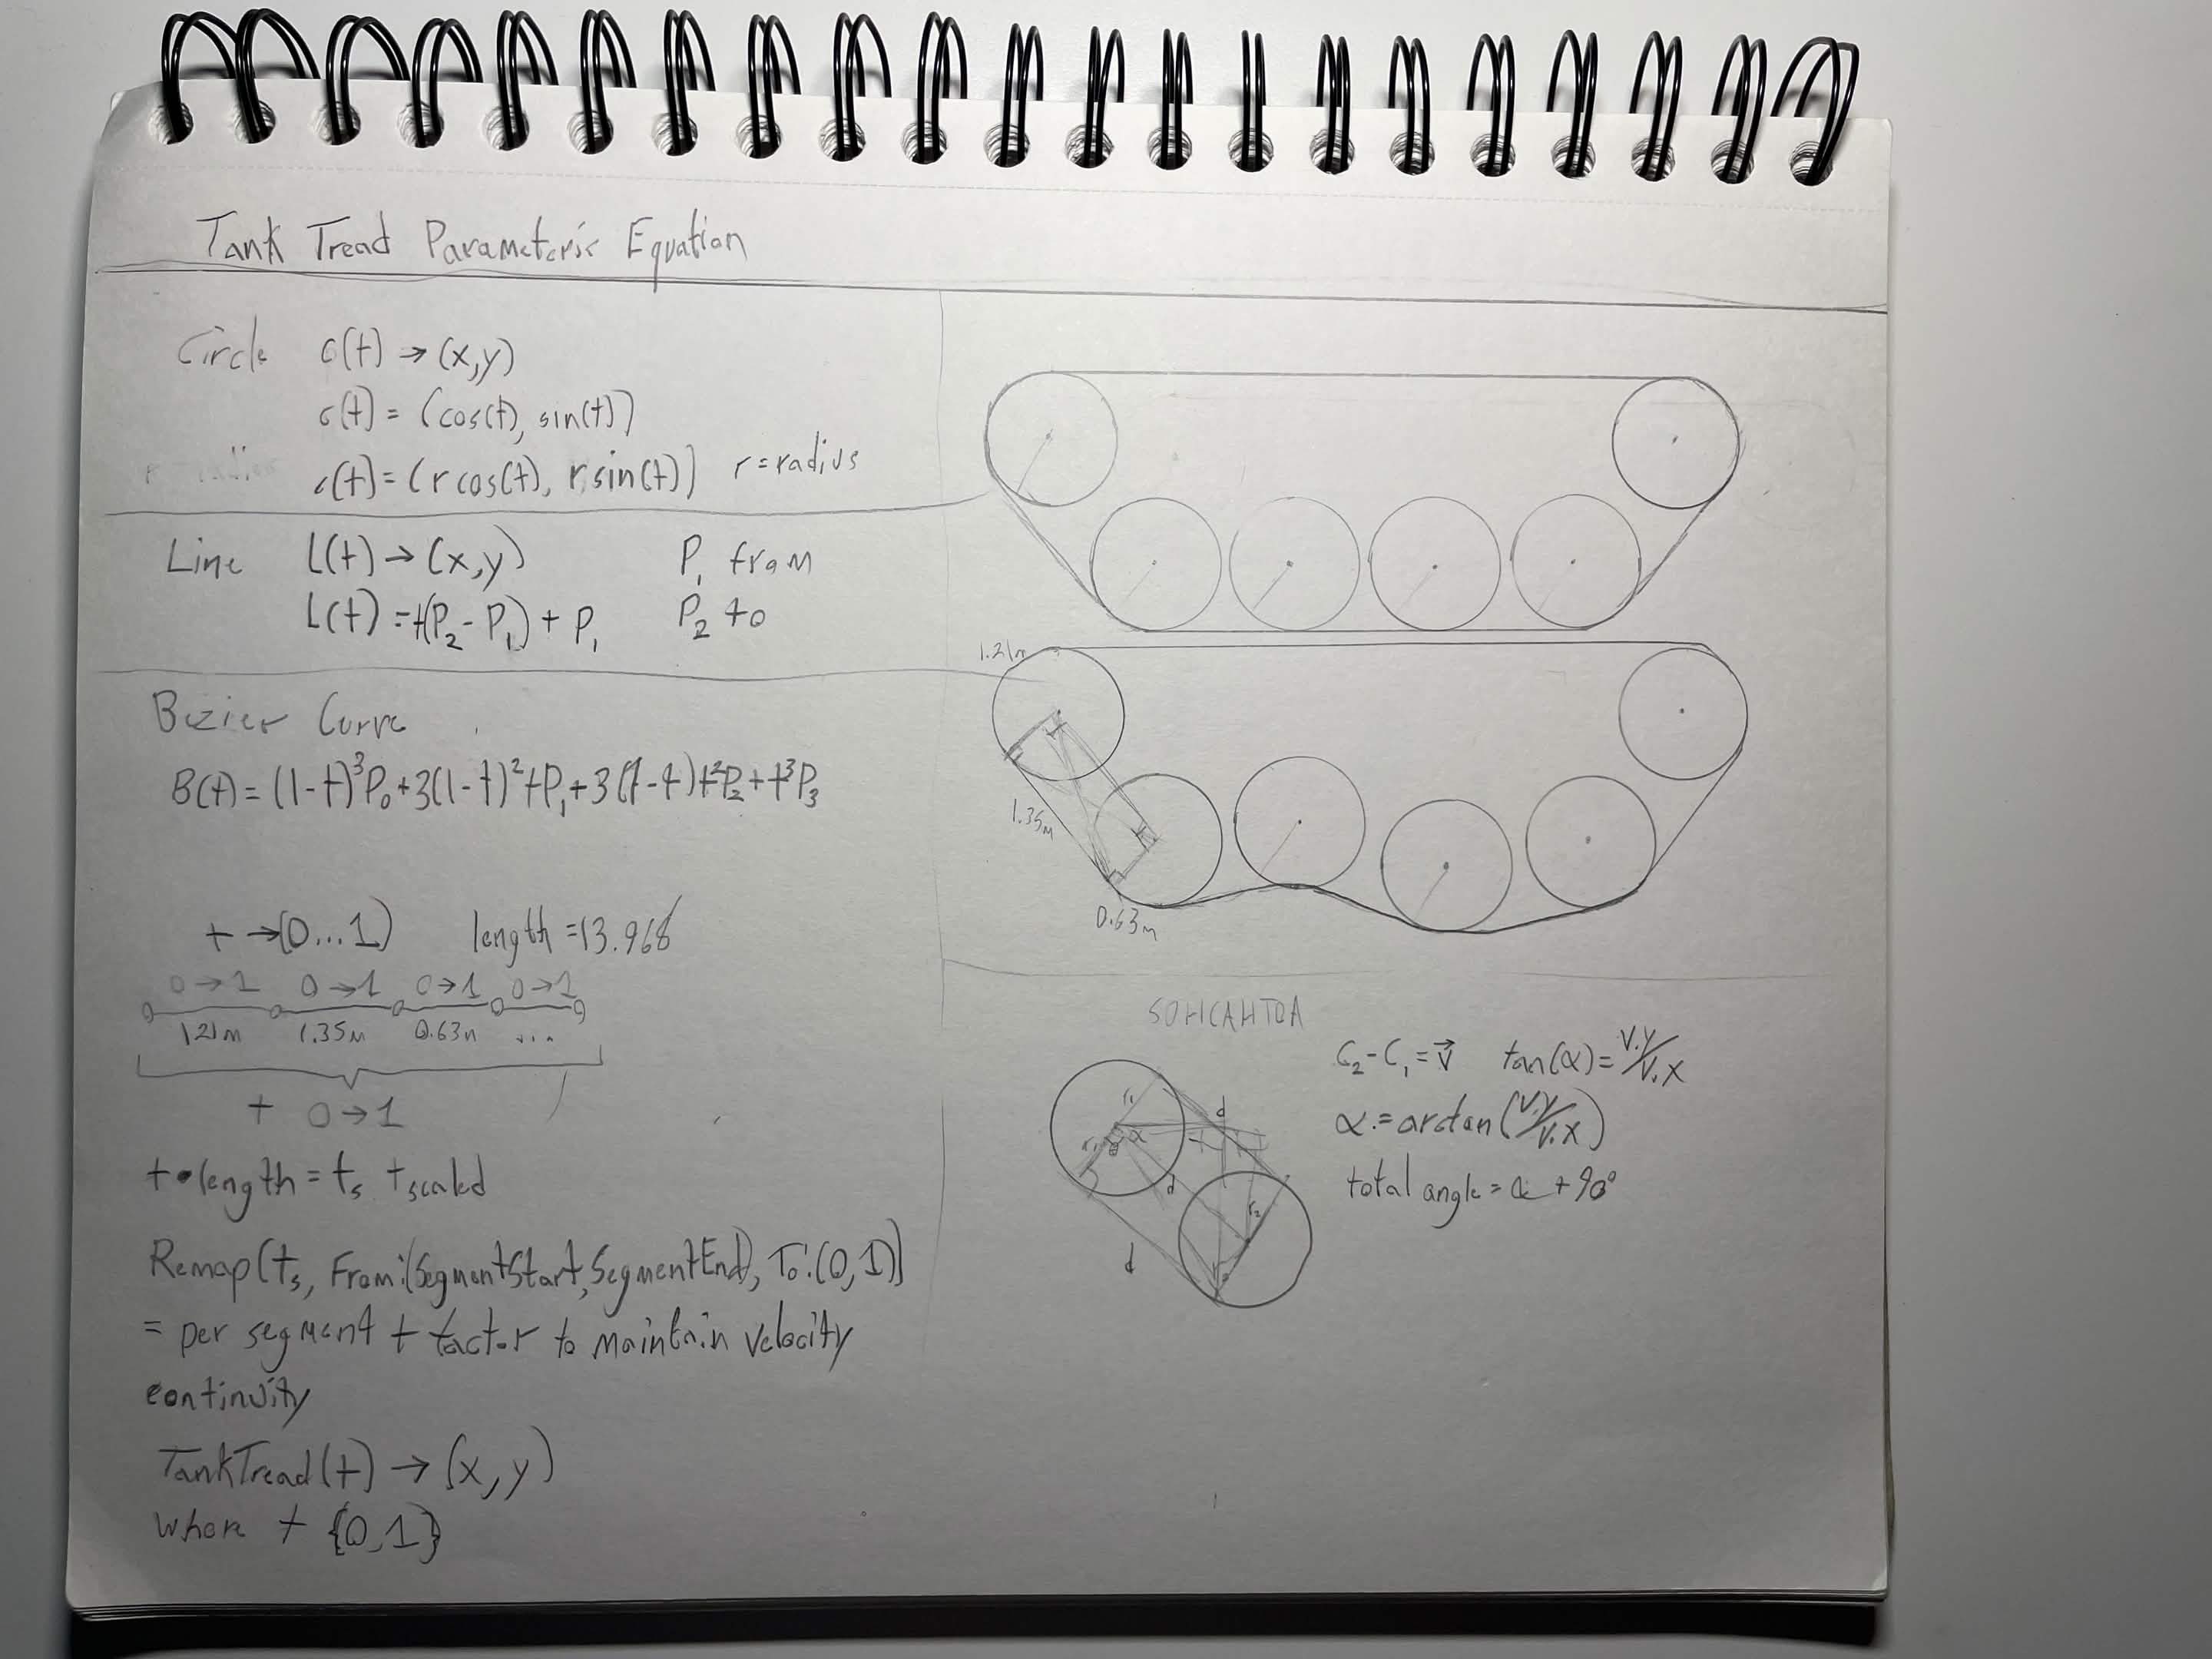 Tank Tread Parametric Equation
Circle c(t) → (x,y)
c(t) = (cos(t), sin(t))
c(t) = (r cos(t), r sin(t)) r = radius
Line L(t) → (x,y) P₁ from
L(t) = t(P₂ - P₁) + P₁ P₂ to
Bezier Curve
B(t) = (1-t)³P₀ + 3(1-t)²tP₁ + 3(1-t)t²P₂ + t³P₃
t → (0...1) length = 13.968
0→1 0→1 0→1 0→1
1.21m 1.35m 0.63m ...
t 0→1
t • length = tₛ tscaled
Remap(tₛ, From:(SegmentStart, SegmentEnd), To:(0,1))
= per segment t factor to maintain velocity
continuity
TankTread(t) → (x,y)
where t {0,1}
1.21m
1.35m
0.63m
SOHCAHTOA
C₂ - C₁ = v⃗ tan(α) = v.y/v.x
α = arctan(v.y/v.x)
total angle = α + 90°
r₁
d
r₁ α
d
r₂
d